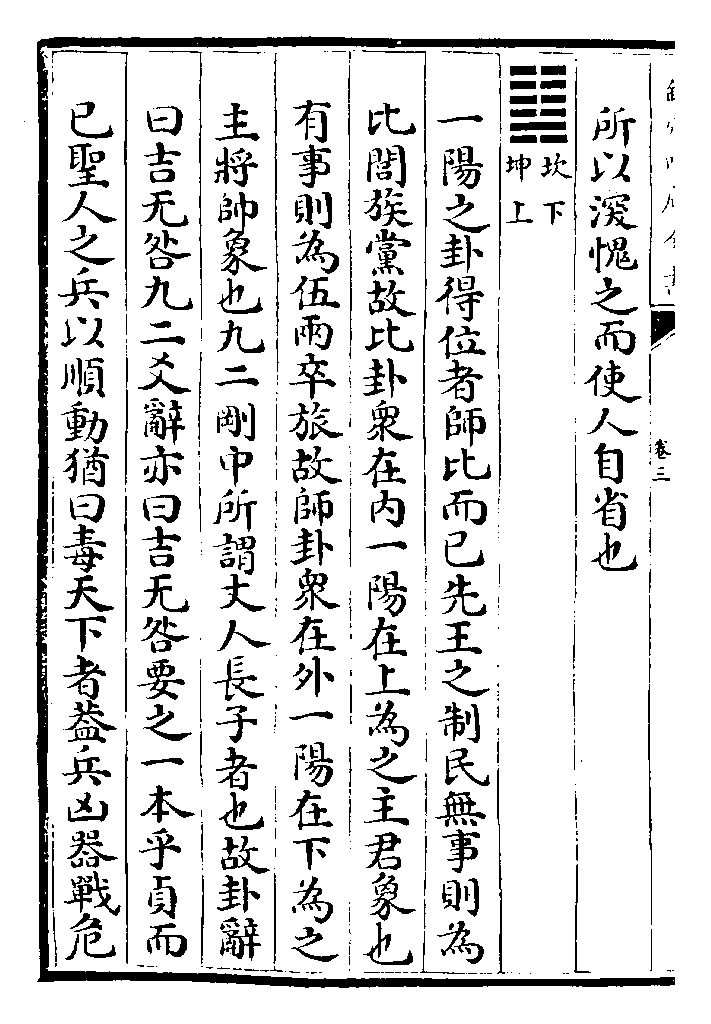 卷三
所以深愧之而使人自省也
坎下
坤上
一陽之卦得位者師比而已先王之制民無事則為
比閭族黨故比卦衆在内一陽在上為之主君象也
有事則為伍兩卒旅故師卦衆在外一陽在下為之
主將帥象也九二剛中所謂丈人長子者也故卦辭
曰吉无咎九二爻辭亦曰吉无咎要之一本乎貞而
已聖人之兵以順動猶曰毒天下者葢兵凶器戰危